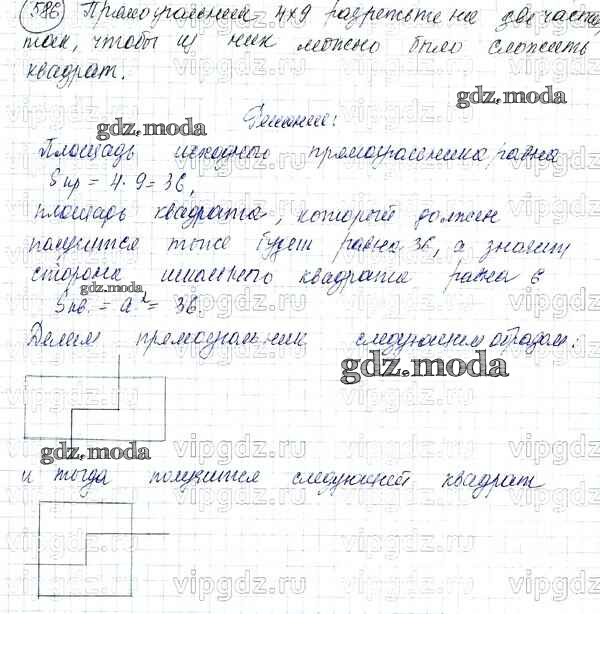 586 Прямоугольник 4×9 разрежьте на две части,
так, чтобы из них можно было сложить
квадрат.
Решение:
gdz.moda
Площадь исходного прямоугольника равна
Sпр = 4·9=36,
площадь квадрата, который должен
получится тоже будет равна 36, а значит
сторона искомого квадрата равна 6
gdz.moda
Sкв. = a² = 36.
Делим прямоугольник следующим образом:
gdz.moda
gdz.moda
и тогда получится следующий квадрат
vipgdz.ru